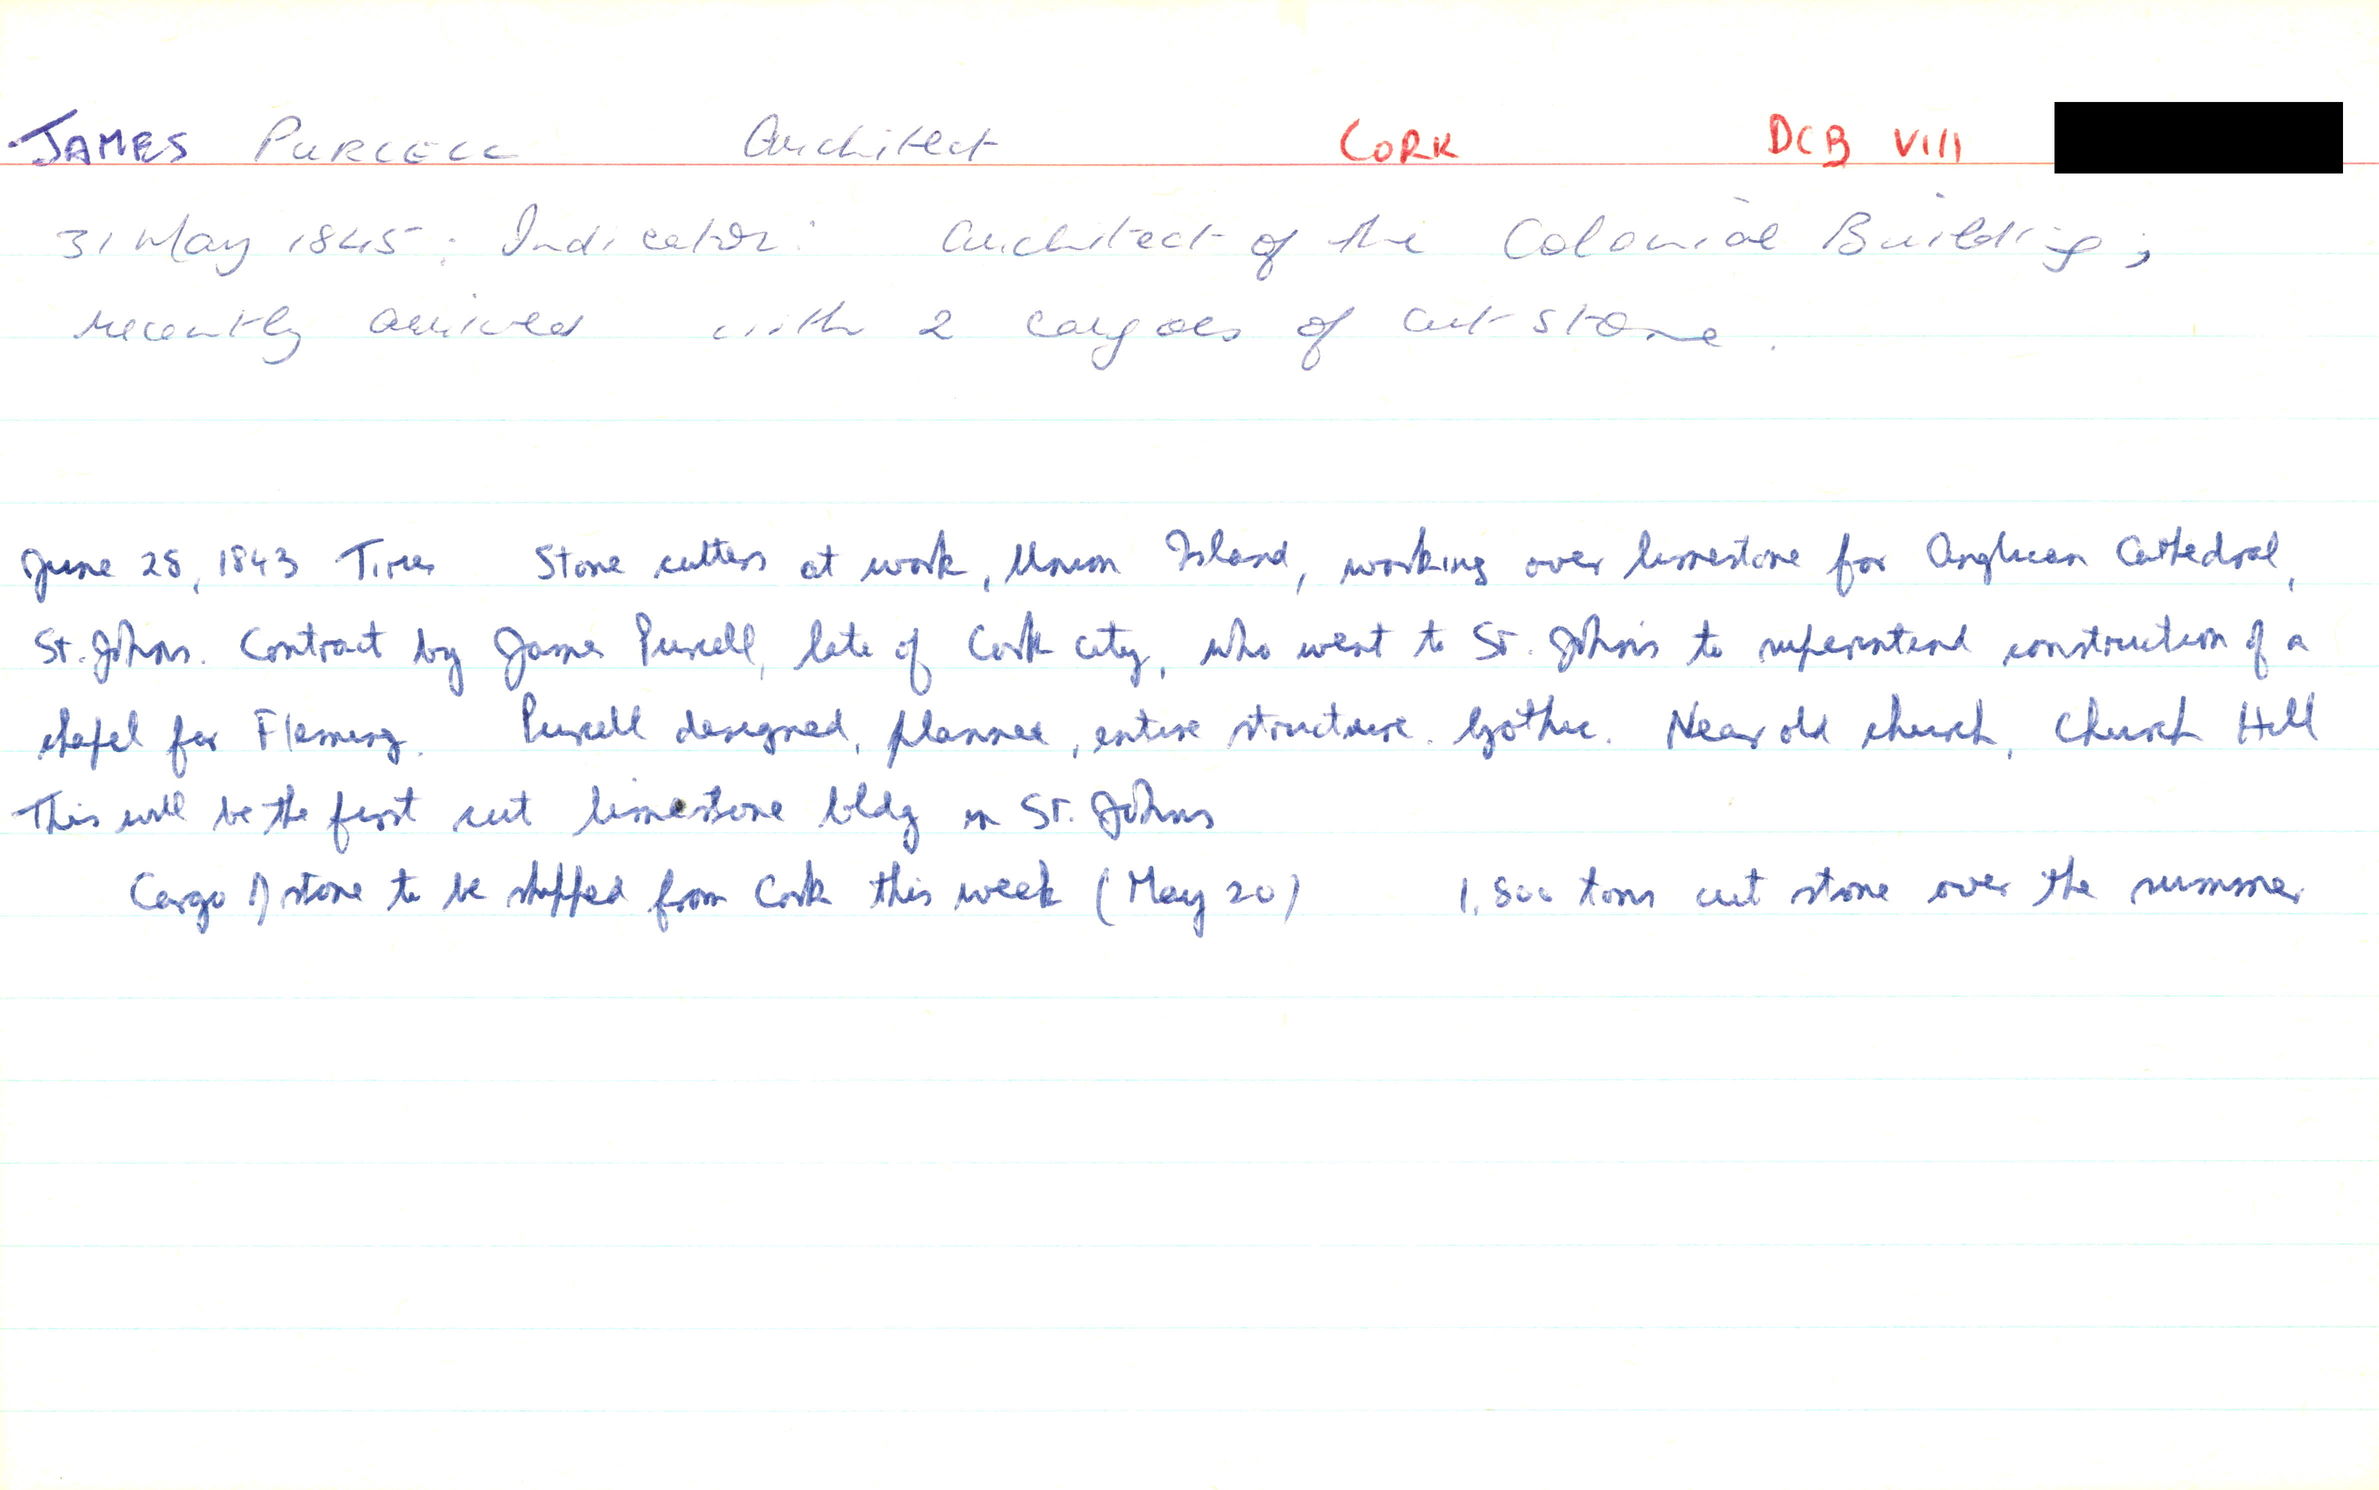 JAMES PURCELL Architect CORK DCB VIII
31 May 1845: Indicator: Architect of the Colonial Building;
recently arrived with 2 cargoes of cut stone.
June 28, 1843 Times Stone cutters at work, Union Island, working over limestone for Anglican Cathedral,
St. Johns. Contract by James Purcell, late of Cork city, who went to St. John's to superintend construction of a
chapel for Fleming. Purcell designed, planned, entire structure. Gothic. Near old church, Church Hill
This will be the first cut limestone bldg in St. Johns
Cargo of stone to be shipped from Cork this week (May 20) 1,800 tons cut stone over the summer